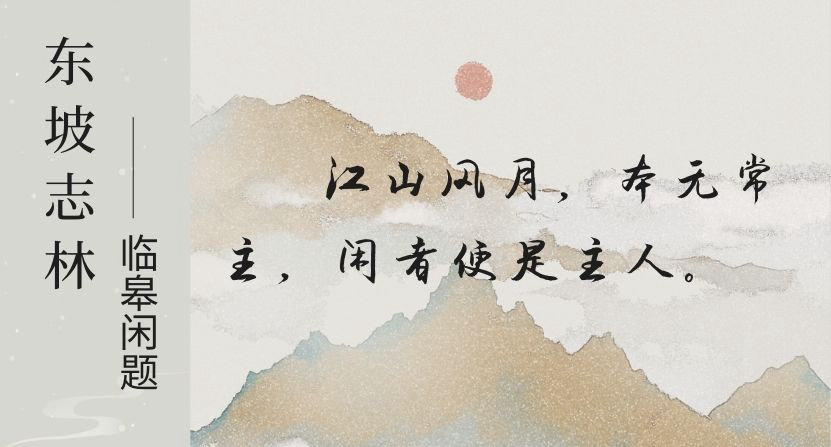 东坡志林
——临皋闲题
江山风月，本无常
主，闲者便是主人。